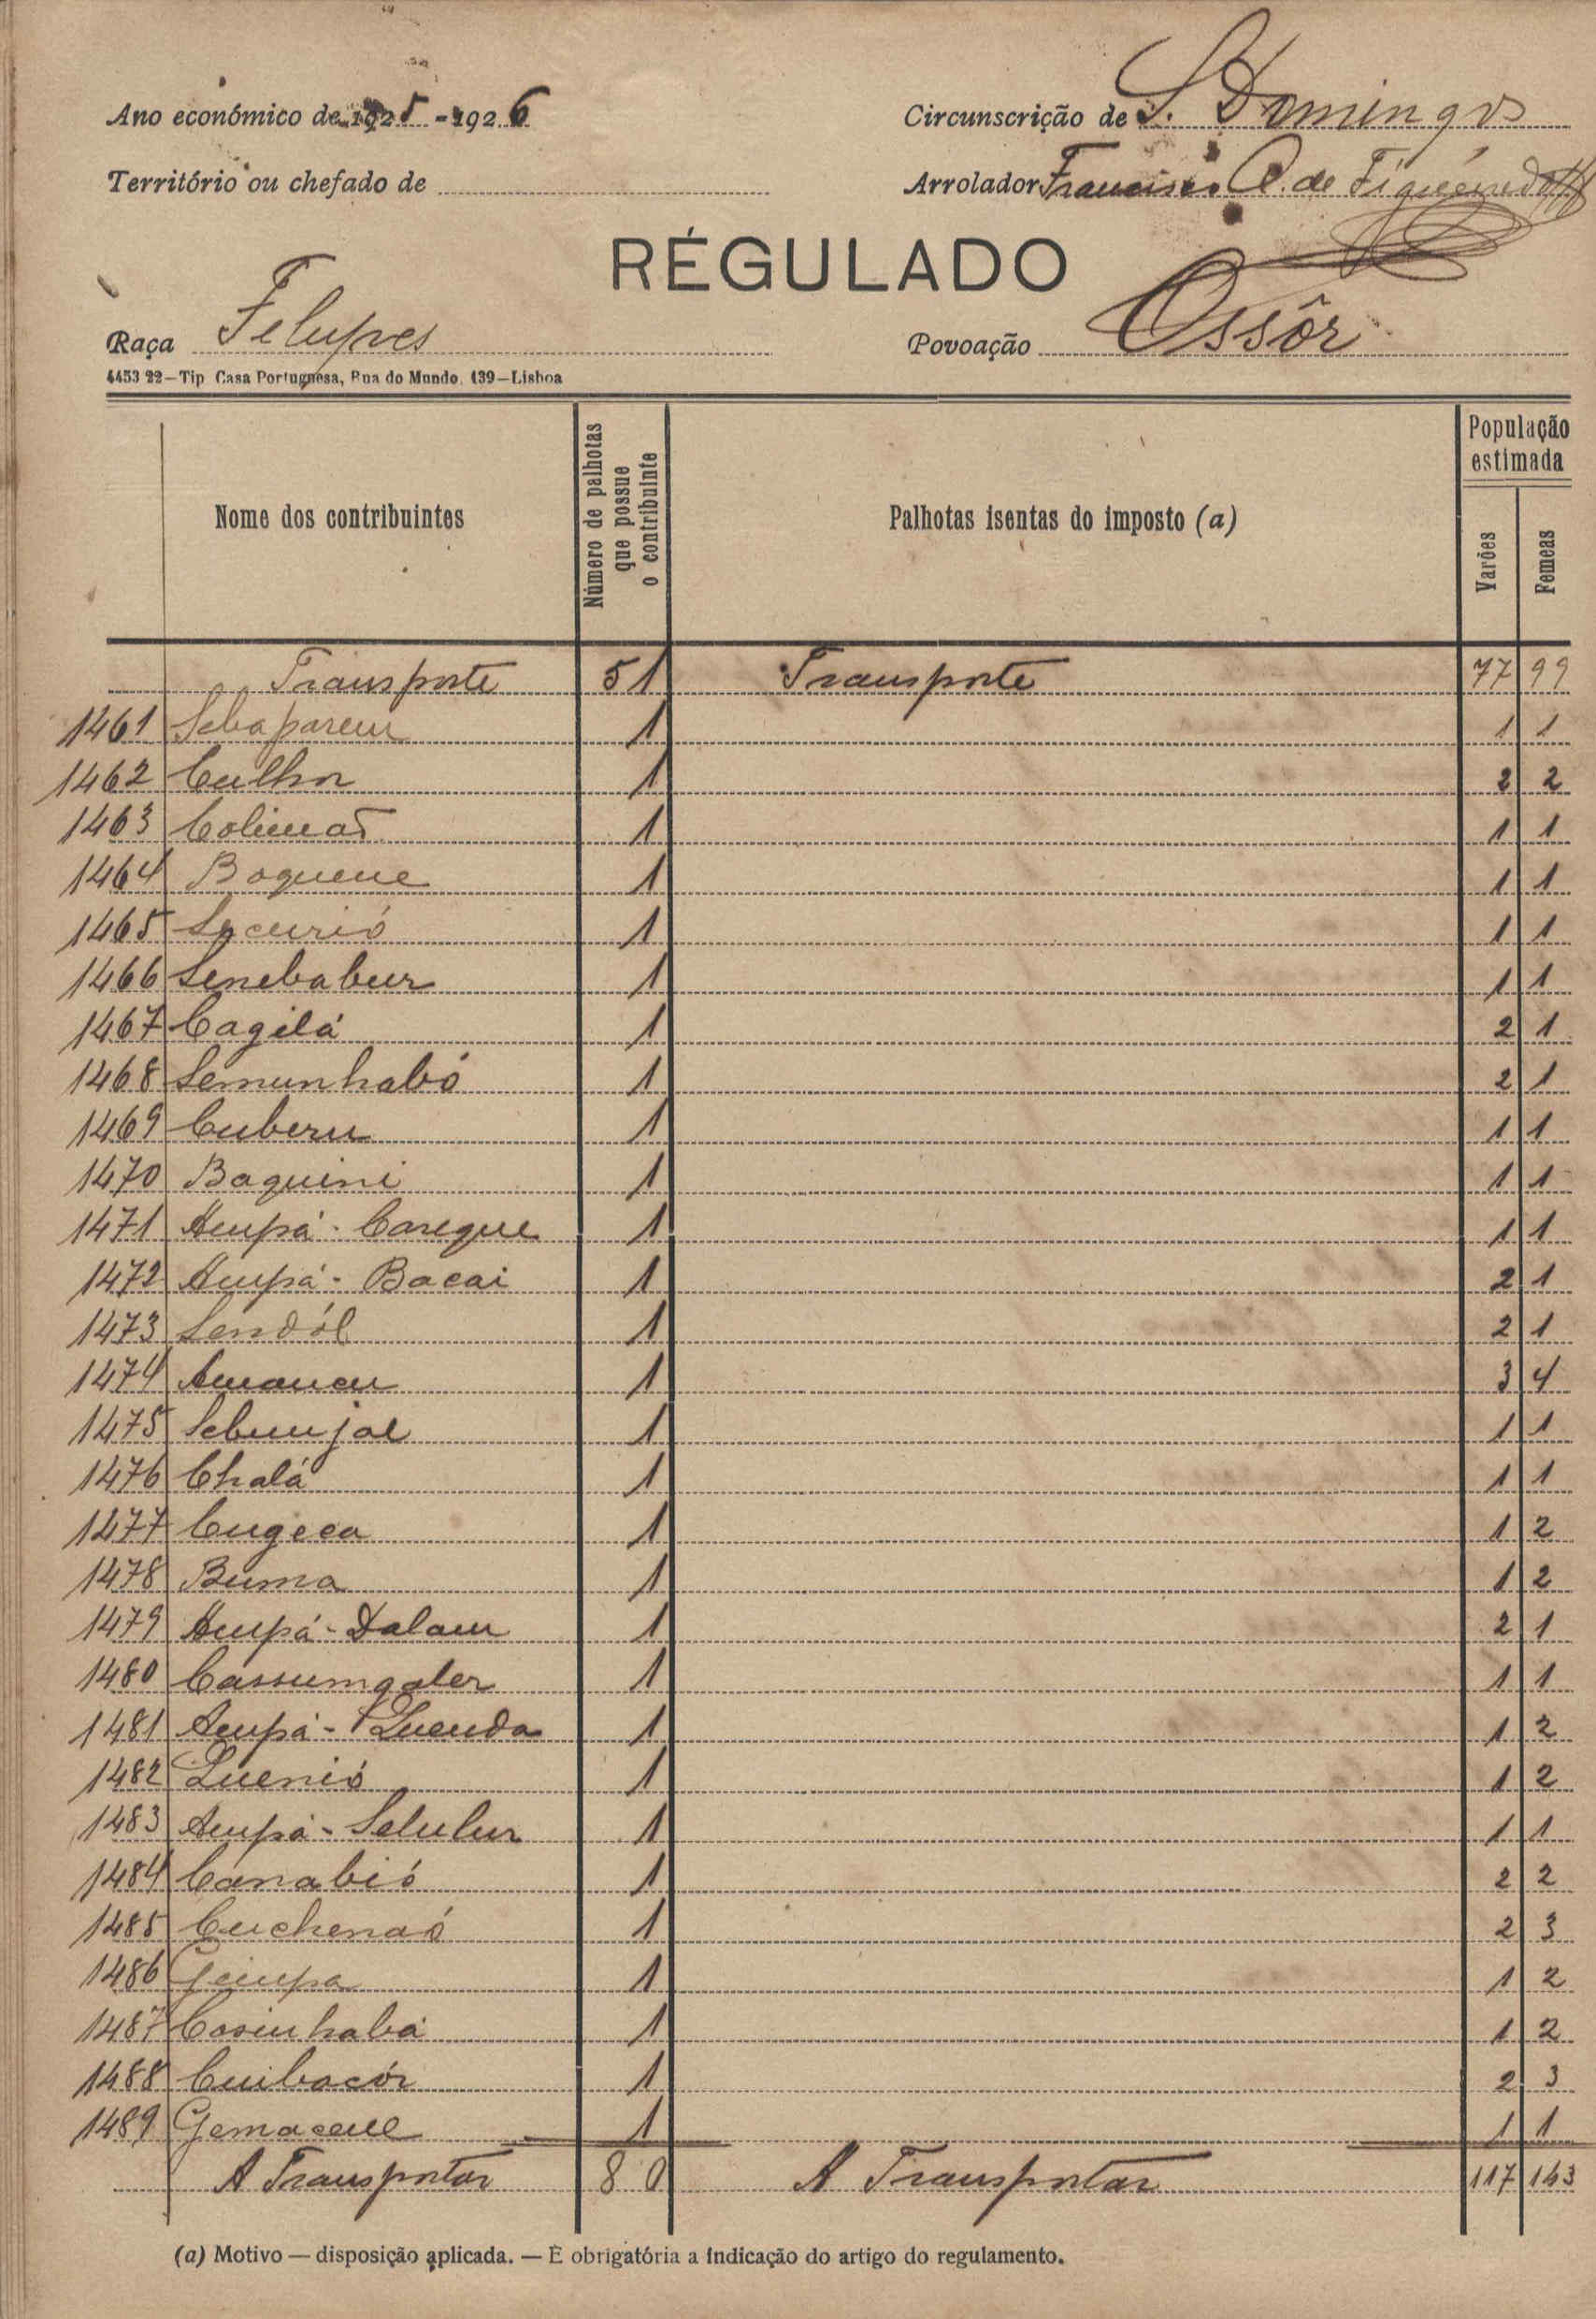 Ano económico de 1925-1926
Circunscrição de S. Domingos
Território ou chefado de
Arrolador Francisco de Figueiredo
RÉGULADO
Raça Felupes
Povoação Ossôr
4453 22—Tip Casa Portuguesa, Rua do Mundo, 139—Lisboa
Nome dos contribuintes
Número de palhotas que possue o contribuinte
Palhotas isentas do imposto (a)
População estimada
Varões
Femeas
Transporte 51 Transporte 77 99
1461 Sebaparem 1 1 1
1462 Culhor 1 2 2
1463 1 1 1
1464 Boquene 1 1 1
1465 1 1 1
1466 Senebabur 1 1 1
1467 Cagilá 1 2 1
1468 Semunhabó 1 2 1
1469 Cuberu 1 1 1
1470 Baquini 1 1 1
1471 Ampá-Careque 1 1 1
1472 Ampá-Bacai 1 2 1
1473 Sendól 1 2 1
1474 1 3 4
1475 1 1 1
1476 Chalá 1 1 1
1477 Cugeca 1 1 2
1478 Buma 1 1 2
1479 Ampá-Dalam 1 2 1
1480 Cassumgoler 1 1 1
1481 Ampá-Quenda 1 1 2
1482 Quenió 1 1 2
1483 Ampá-Selulur 1 1 1
1484 Canabió 1 2 2
1485 Cuchenaó 1 2 3
1486 1 1 2
1487 Cosinhabá 1 1 2
1488 Cuibacór 1 2 3
1489 1 1 1
A Transportar 80 A Transportar 117 143
(a) Motivo — disposição aplicada. — É obrigatória a indicação do artigo do regulamento.